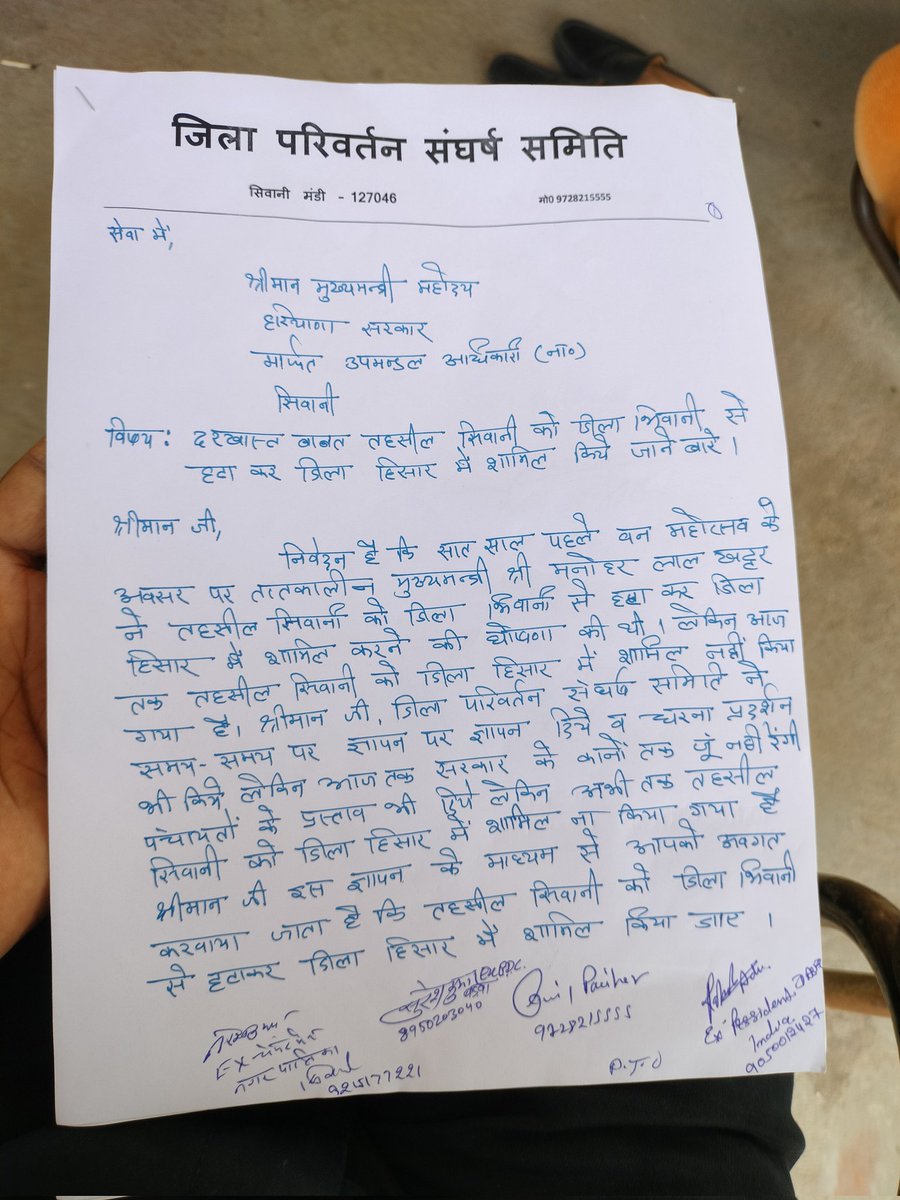 जिला परिवर्तन संघर्ष समिति
सिवानी मंडी - 127046
मो0 9728215555
सेवा में,
श्रीमान मुख्यमन्त्री महोदय
हरियाणा सरकार
मार्फत उपमण्डल अधिकारी (ना०)
सिवानी
विषय : दरखास्त बाबत तहसील सिवानी को जिला भिवानी से
हटा कर जिला हिसार में शामिल किये जाने बारे ।
श्रीमान जी,
निवेदन है कि सात साल पहले वन महोत्सव के
अवसर पर तत्कालीन मुख्यमन्त्री श्री मनोहर लाल खट्टर
ने तहसील सिवानी को जिला भिवानी से हटा कर जिला
हिसार में शामिल करने की घोषणा की थी । लेकिन आज
तक तहसील सिवानी को जिला हिसार में शामिल नहीं किया
गया है। श्रीमान जी, जिला परिवर्तन संघर्ष समिति ने
समय-समय पर ज्ञापन पर ज्ञापन दिये व धरना प्रदर्शन
भी किये, लेकिन आज तक सरकार के कानों तक जूं नहीं रेंगी
पंचायतों के प्रस्ताव भी दिये लेकिन अभी तक तहसील
सिवानी को जिला हिसार में शामिल ना किया गया है
श्रीमान जी इस ज्ञापन के माध्यम से आपको अवगत
करवाया जाता है कि तहसील सिवानी को जिला भिवानी
से हटाकर जिला हिसार में शामिल किया जाए ।
8950203040
9728215555
Ex. President
India
9050012427
Ex
नगर पालिका
9215177221
P.T.O